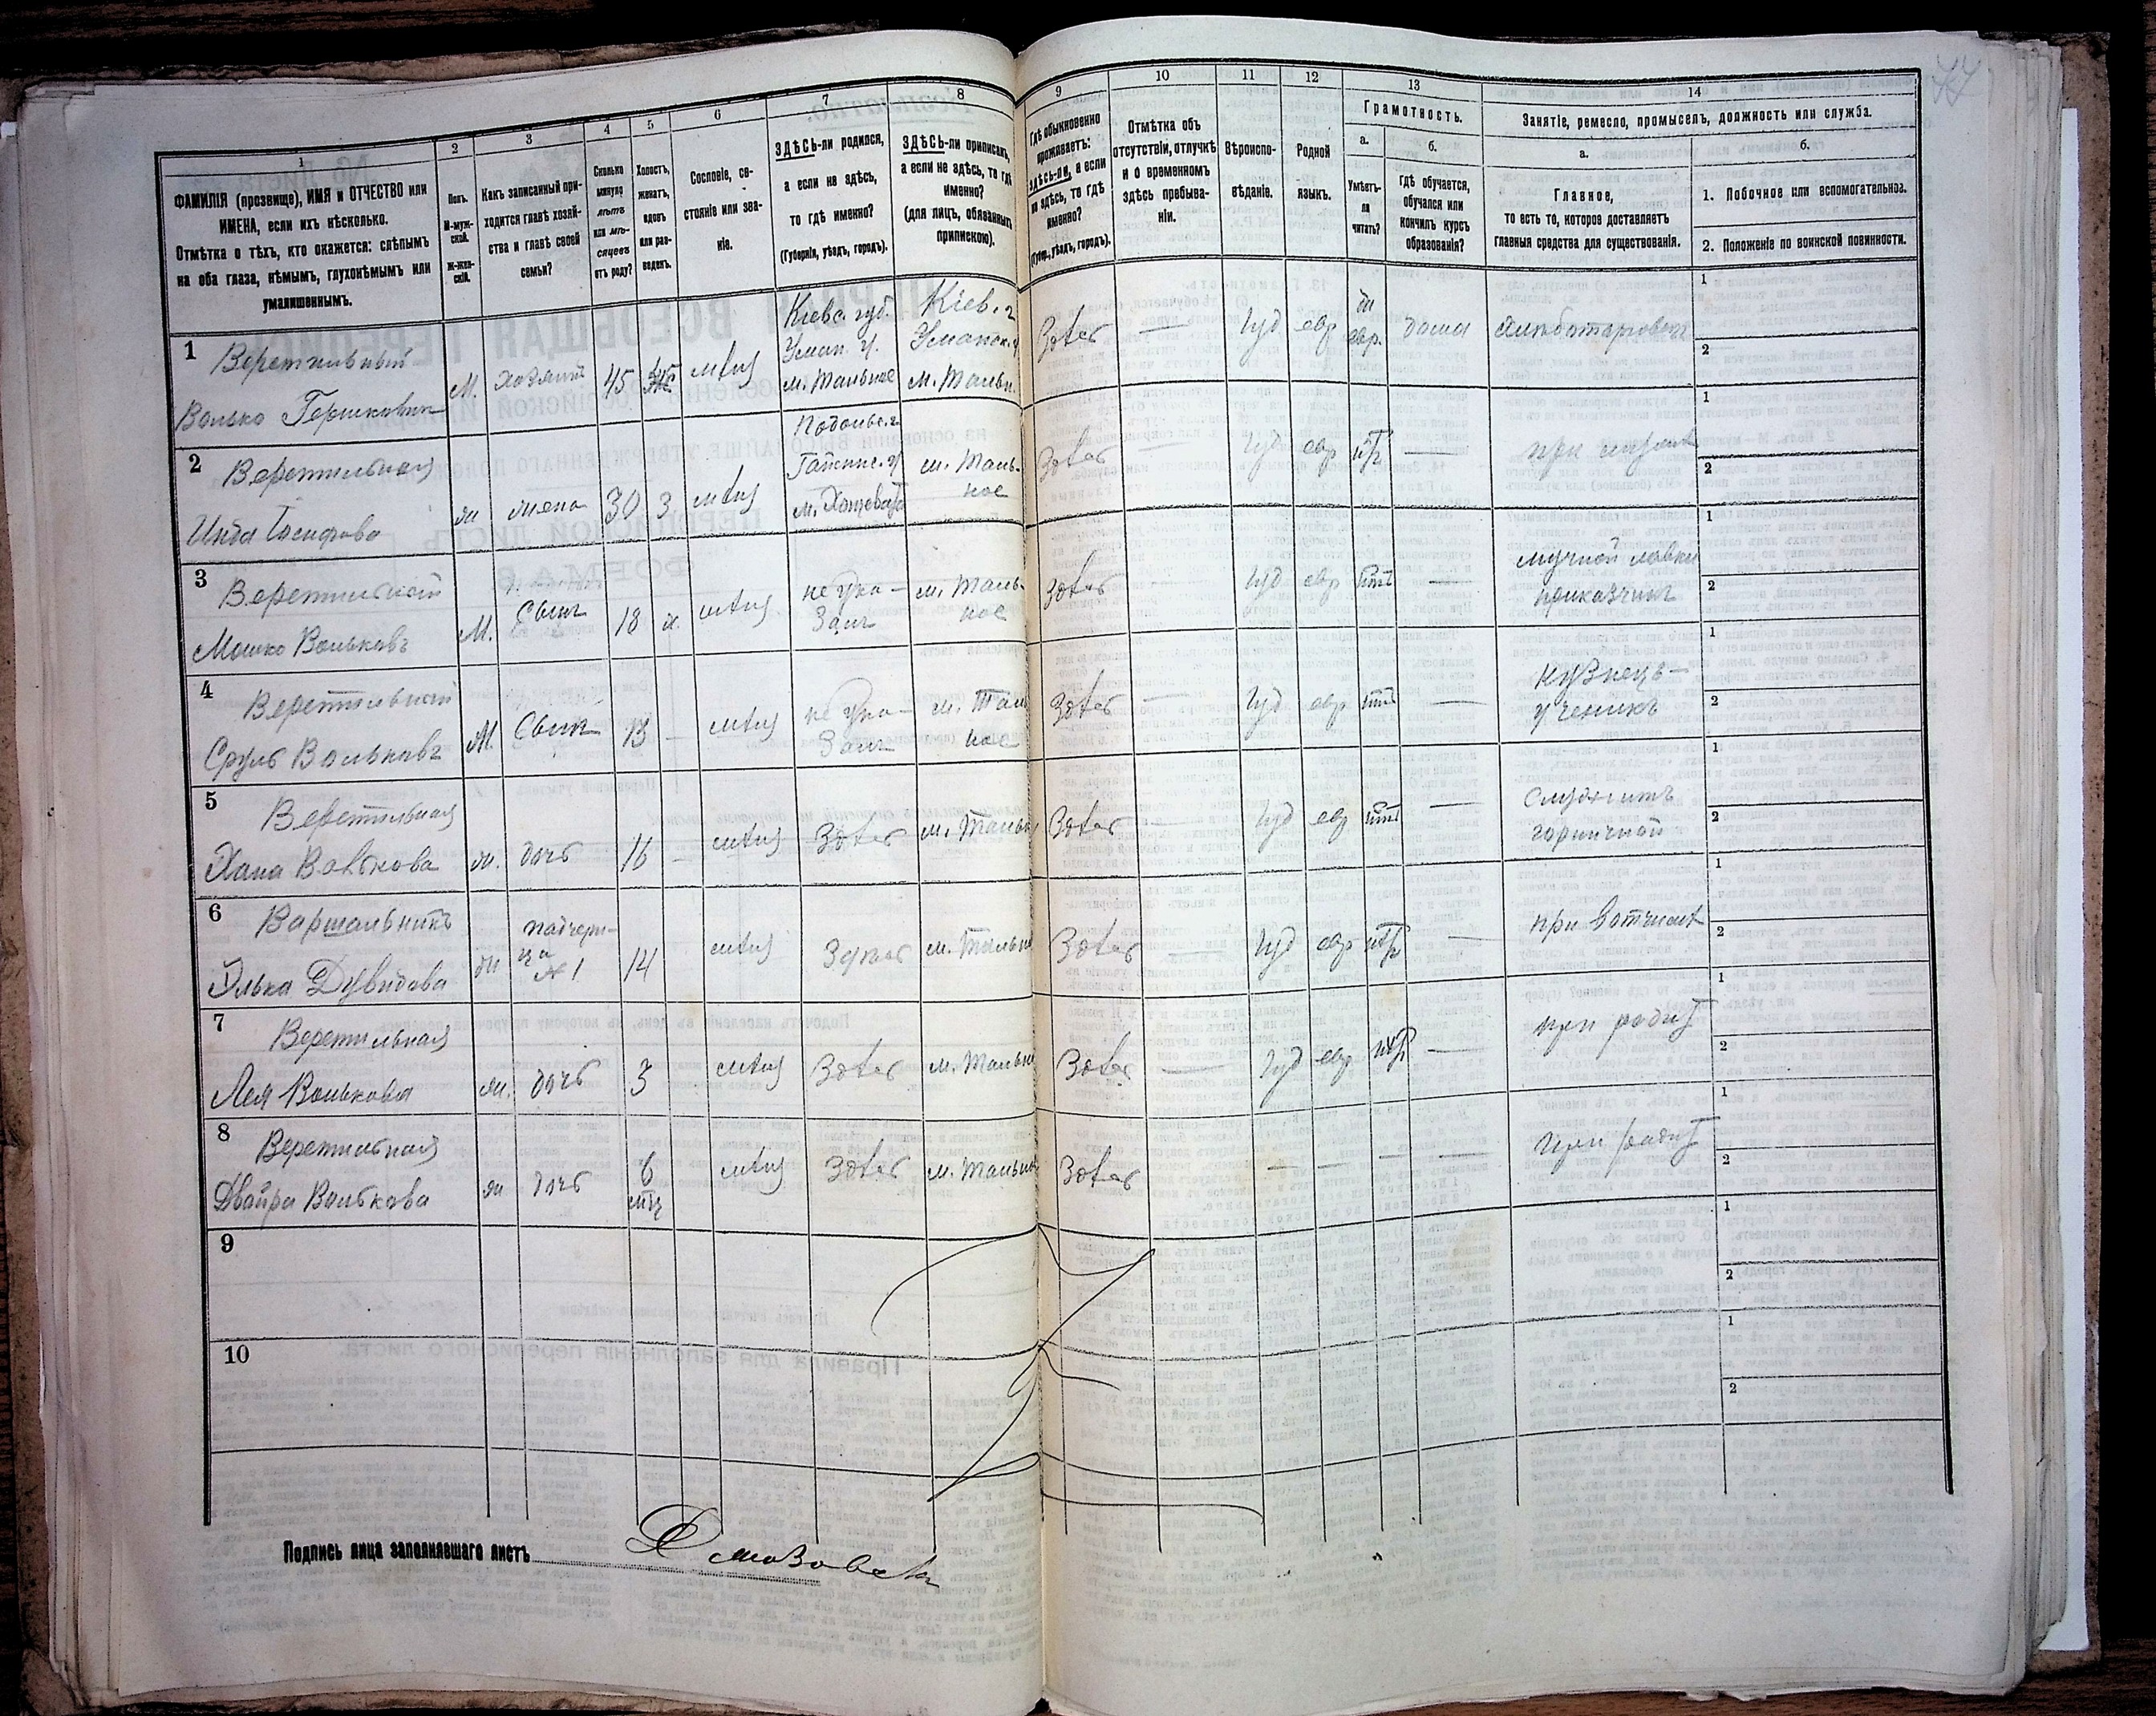 1
ФАМИЛІЯ (прозвище), ИМЯ и ОТЧЕСТВО или
ИМЕНА, если ихъ нѣсколько.
Отмѣтка о тѣхъ, кто окажется: слѣпымъ
на оба глаза, нѣмымъ, глухонѣмымъ или
умалишеннымъ.
2
Полъ.
М-муж-
ской.
Ж-жен-
скій.
3
Какъ записанный при-
ходится главѣ хозяй-
ства и главѣ своей
семьи?
4
Сколько
минуло
лѣтъ
или мѣ-
сяцевъ
отъ роду?
5
Холостъ,
женатъ,
вдовъ
или раз-
веденъ.
6
Сословіе, со-
стояніе или зва-
ніе.
7
ЗДѢСЬ-ли родился,
а если не здѣсь,
то гдѣ именно?
(Губернія, уѣздъ, городъ).
8
ЗДѢСЬ-ли приписанъ,
а если не здѣсь, то гдѣ
именно?
(для лицъ, обязанныхъ
припискою).
9
Гдѣ обыкновенно
проживаетъ:
здѣсь-ли, а если
не здѣсь, то гдѣ
именно?
(Губер., уѣздъ, городъ).
10
Отмѣтка объ
отсутствіи, отлучкѣ
и о временномъ
здѣсь пребыва-
ніи.
11
Вѣроиспо-
вѣданіе.
12
Родной
языкъ.
13
Грамотность.
а.
Умѣетъ-
ли
читать?
б.
Гдѣ обучается,
обучался или
кончилъ курсъ
образованія?
14
Занятіе, ремесло, промыселъ, должность или служба.
а.
Главное,
то есть то, которое доставляетъ
главныя средства для существованія.
б.
1. Побочное или вспомогательное.
2. Положеніе по воинской повинности.
1
Веретильный
Волько Гершковичъ
М. хозяинъ 45
мѣщ
Кіевс. губ.
Уман. у.
м. Тальное
Кіев. г
Уманск. у
м. Тальн.
Здѣсь — Іуд евр
да
евр.
дома
1
2
2
Веретильная
Инда Іосифова
ж жена 30 з мѣщ
Подольс. г
Гайсинс. у
м. Хощевата
м. Таль-
ное
Здѣсь — Іуд евр нѣт —
при мужѣ
1
2
3
Веретильный
Мошко Вольковъ
М. Сынъ 18 х. мѣщ
не ука-
занъ
м. Таль-
ное
Здѣсь — Іуд евр нѣтъ —
мучной лавки
приказчикъ
1
2
4
Веретильный
Сруль Вольковъ
М. Сынъ 13 — мѣщ
не ука-
занъ
м. Таль
ное
Здѣсь — Іуд евр нѣтъ —
кузнецъ-
ученикъ
1
2
5
Веретильная
Хана Волькова
ж. дочь 16 — мѣщ Здѣсь м. Тальн
Здѣсь — Іуд евр нѣтъ —
служитъ
горничной
1
2
6
Варшальникъ
Элька Дувидова
ж
падчери-
ца
№ 1
14 мѣщ Здѣсь м. Тальн
Здѣсь — Іуд евр нѣт —
при вотчимѣ
1
2
7
Веретильная
Лея Волькова
ж. дочь 3 мѣщ Здѣсь м. Тальн
Здѣсь — Іуд евр нѣт —
при родит
1
2
8
Веретильная
Двойра Волькова
ж дочь
6
мѣц
мѣщ Здѣсь м. Тальн
Здѣсь — — — —
при родит
1
2
9
1
2
10
1
2
Подпись лица заполнявшаго листъ